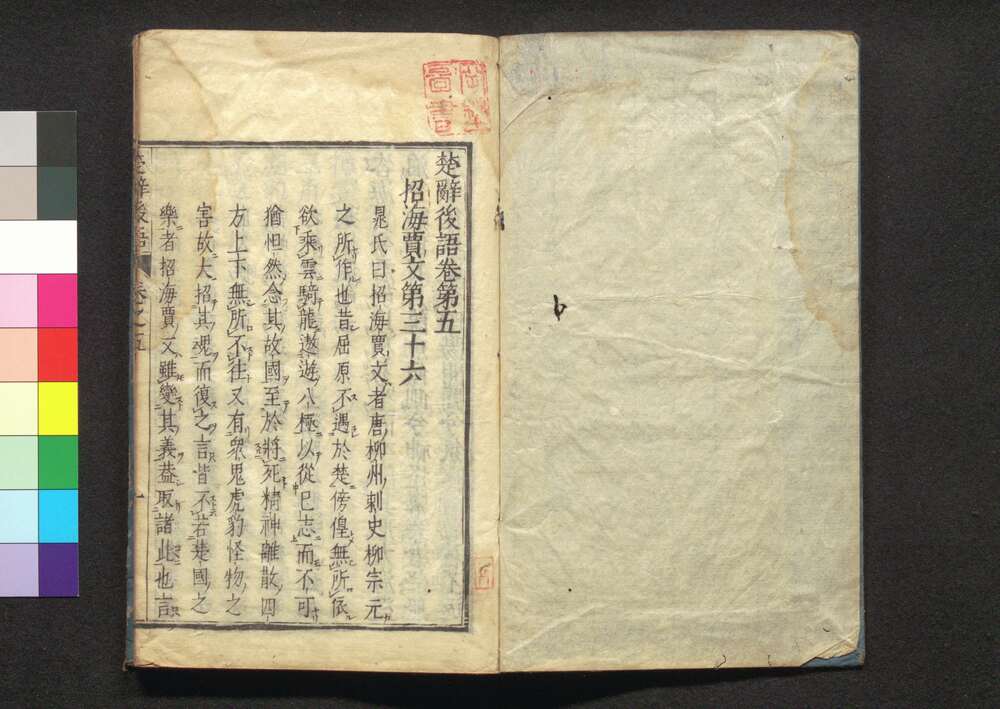 楚辭後語卷第五
招海賈文第三十六
晁氏曰招海賈文者唐柳州刺史柳宗元
之所作也昔屈原不遇於楚傍偟無所依
欲乘雲騎龍遨遊八極以從己志而不可
猶怛然念其故國至於將死精神離散四
方上下無所不往又有衆鬼虎豹怪物之
害故大招其魂而復之言皆不若楚國之
樂者招海賈文雖變其義蓋取諸此也言
楚辭後語 卷之五